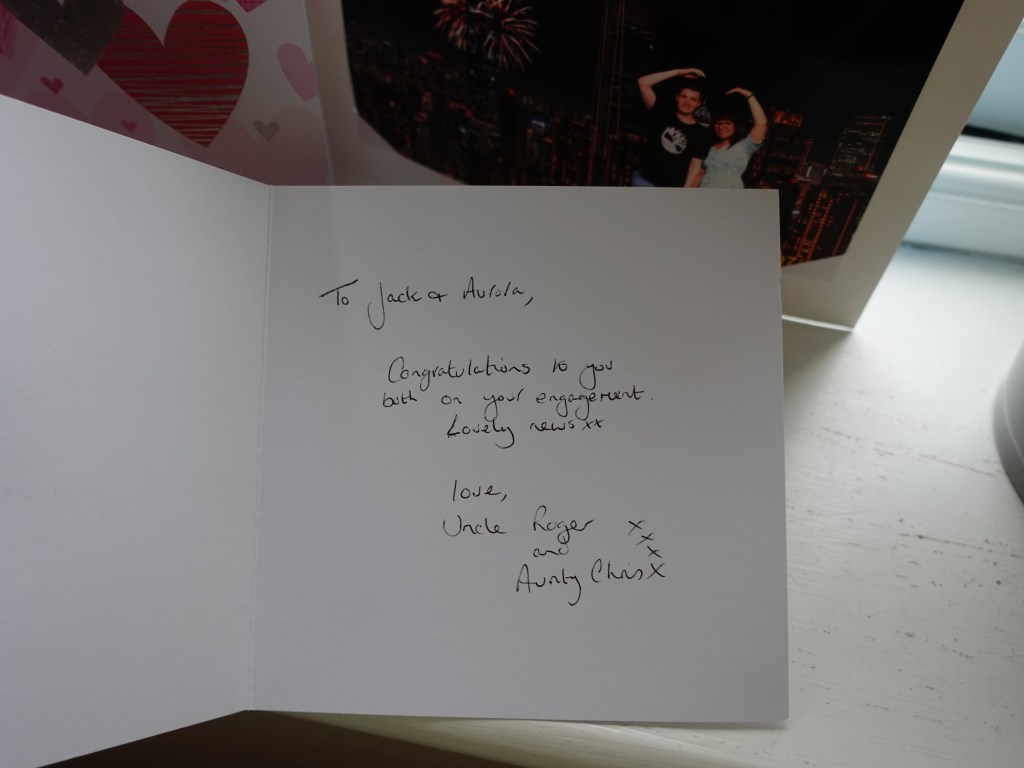 To Jack & Aurora,
Congratulations to you
both on your engagement.
Lovely news xx
love,
Uncle Roger x
x
and x
Aunty Chris x